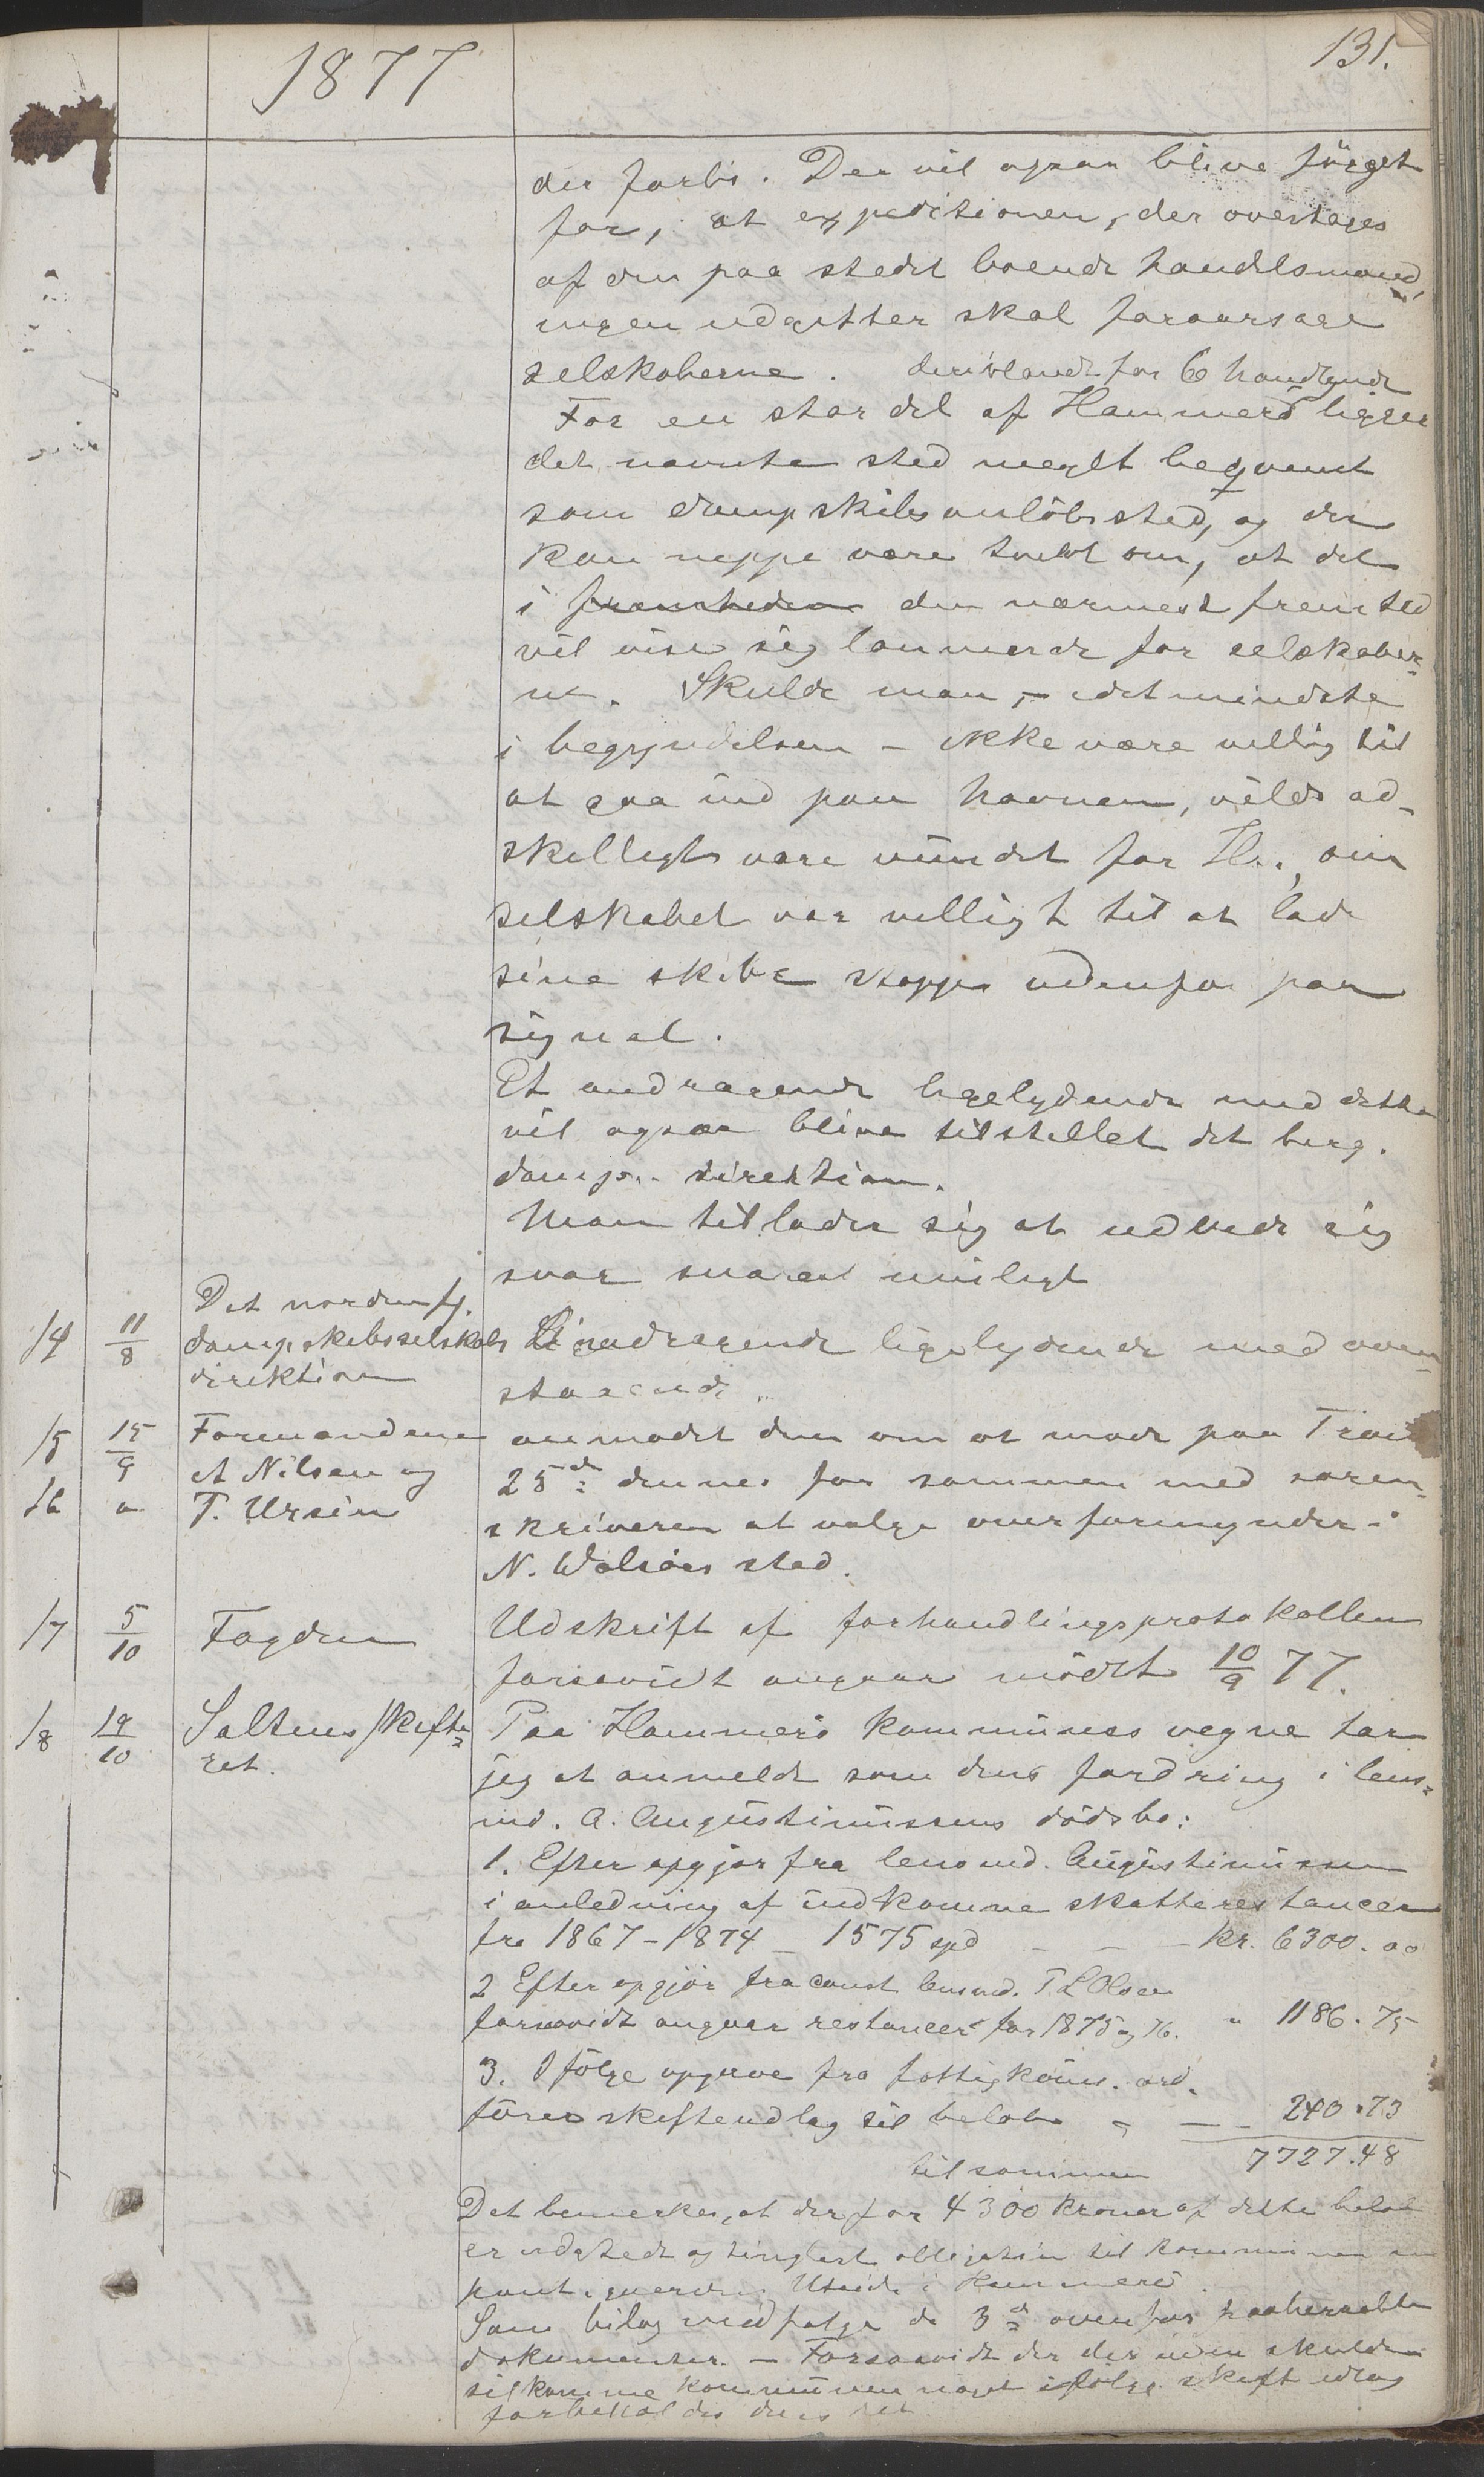 1877
131.
der forbi. Der vil ogsaa blive sörget
for, at expeditionen, der overtages
af den paa stedet boende handelsmand,
ingen udgifter skal foraarsage
selskaberne. deriblandt for 6 handlende
For en stor del af Hammerö ligger
det nævnte sted meget beqvemt
som dampskibsanlöbssted, og der
kan neppe være tvivl om, at det
i fremtiden den nærmeste fremtid
vil vise sig lönnende for selskaber-
ne. Skulde man, – idetmindste
i begyndelsen – ikke være villig til
at gaa ind paa havnen, vilde ad-
skilligt være vundet for H., om
selskabet var villigt til at lade
sine skibe stoppe udenfor paa
signal.
Et andragende ligelydende med dette
vil ogsaa blive tilstillet det berg.
damps. direktion.
Man tillader sig at udbede sig
svar snarest muligt
14 11/8 Det nordenfj. dampskibsselskabs direktion
andragende ligelydende med oven-
staaende
15 15/9 Formændene
16 " A Nilsen og T. Ursin
anmodet dem om at møde paa
25de dennes for sammen med soren-
skriveren at vælge overformynder i
N. Walsöes sted.
17 5/10 Fogden
Udskrift af forhandlingsprotokollen
forsavidt angaar mödet 10/9 77.
18 19/10 Saltens skifte-
ret.
Paa Hammerö kommunes vegne har
jeg at anmelde som dens fordring i lens-
md. A. Augustinussens dödsbo:
1. Efter opgjør fra lensmd. Augustinussen
i anledning af indkomne skatterestancer
fra 1867-1874 – 1575 spd – – – kr. 6300.00
2 Efter opgjör fra const lensmd. T. L Olsen
forsavidt angaar restancer for 1875 og 76. " 1186.75
3. Ifölge opgave fra fattigkoms. ord-
förer skifteudlæg til belöb " – – 240.73
tilsammen 7727.48
Det bemerkes, at der for 4300 kroner af dette belöb
er udstedt og tinglæst obligation til kommunen
pant i i Hammerö.
Som bilag medfölge de 3de ovenfor paaberaabte
dokumenter. – Forsaavidt der desuden skulde
tilkomme kommunen noget ifölge skifteudlæg
forbeholdes dens ret